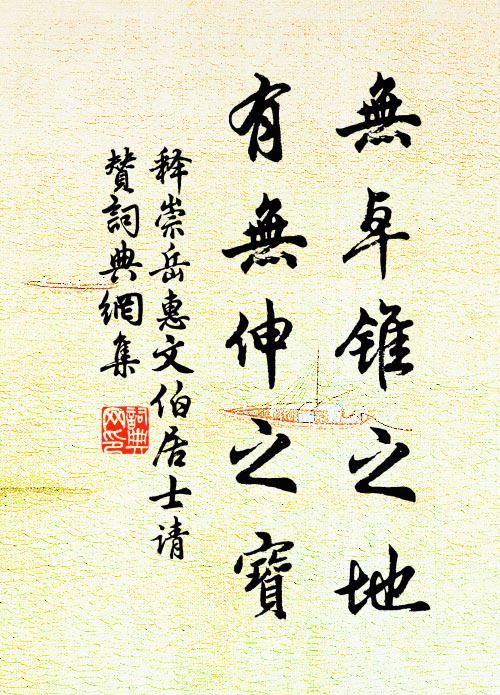 無卓錐之地
有無伸之寶
释崇岳惠文伯居士请
赞詞典網集
詞典
网印